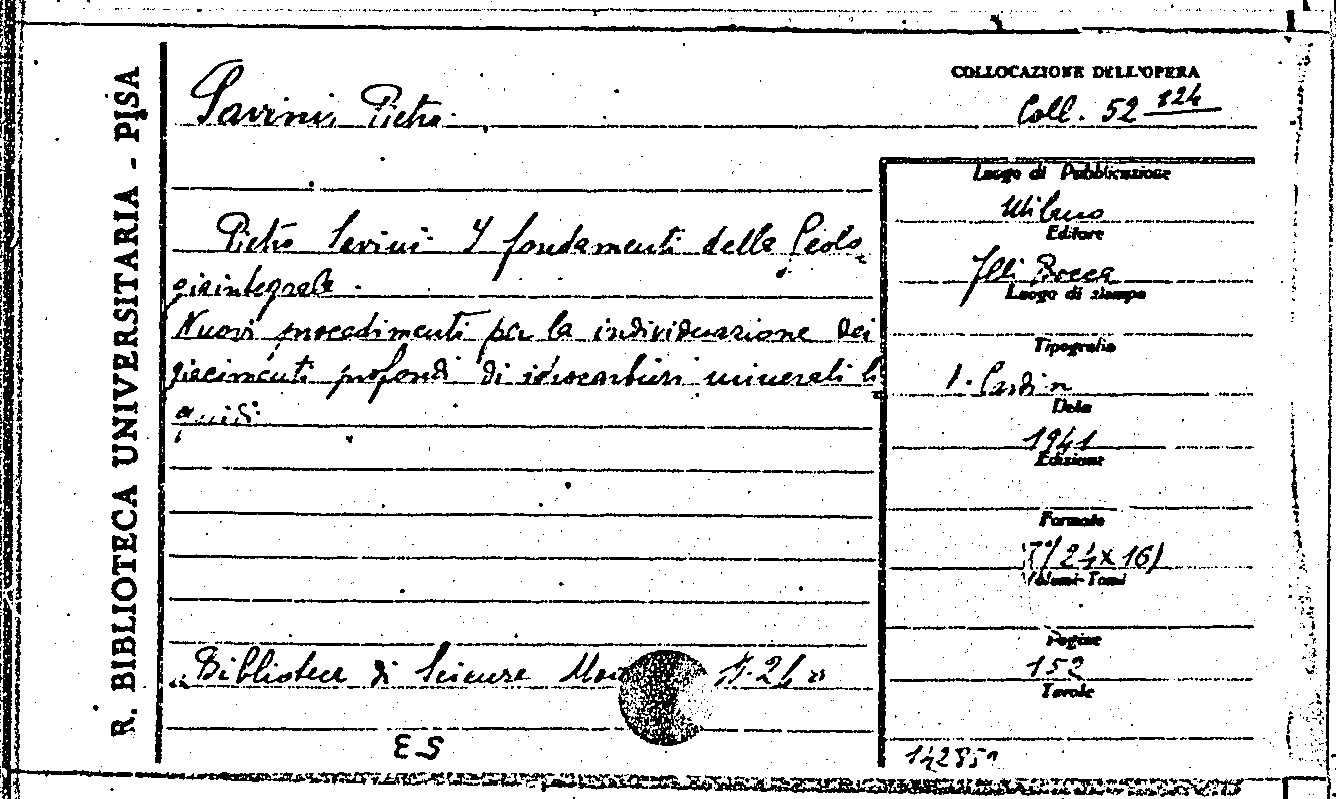 R. BIBLIOTECA UNIVERSITARIA - PISA
COLLOCAZIONE DELL'OPERA
Coll. 52 124
Savini, Pietro.
Luogo di Pubblicazione
Milano
Editore
Flli Bocca
Luogo di stampa
Tipografia
Data
1941
Edizione
Formato
(24x16)
Volumi-Tomi
Pagine
152
Tavole
Pietro Savini. I fondamenti della Geolo
gia integrale.
Nuovi procedimenti per la individuazione dei
giacimenti profondi di idrocarburi minerali li
quidi.
"Biblioteca di Scienze Mod
N. 24"
ES